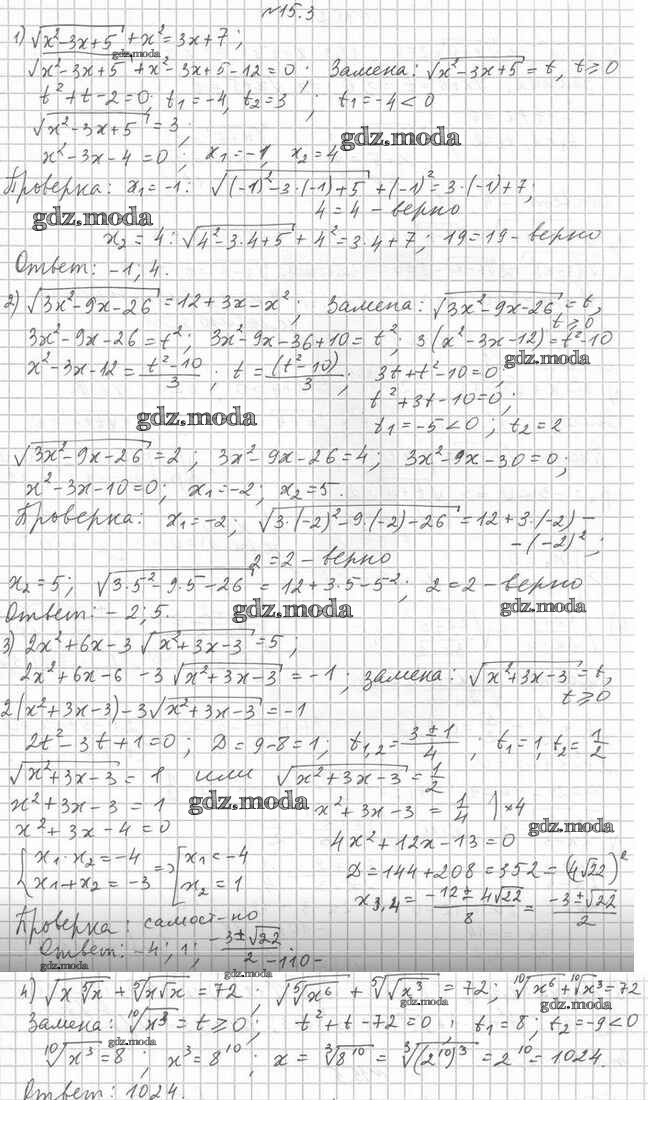 №15.3
1) √(x²-3x+5) + x² = 3x+7;
√(x²-3x+5) + x²-3x+5-12=0; Замена: √(x²-3x+5) = t, t≥0
t²+t-2=0; t₁=-4, t₂=3; t₁=-4<0
√(x²-3x+5) = 3;
x²-3x-4=0; x₁=-1, x₂=4
Проверка: x₁=-1: √((-1)²-3·(-1)+5) + (-1)² = 3·(-1)+7;
4=4 - верно
x₂=4: √(4²-3·4+5) + 4² = 3·4+7; 19=19 - верно
Ответ: -1; 4.
2) √(3x²-9x-26) = 12+3x-x²; Замена: √(3x²-9x-26) = t,
t≥0
3x²-9x-26=t²; 3x²-9x-36+10=t²; 3(x²-3x-12)=t²-10
x²-3x-12 = (t²-10)/3; t = (t²-10)/3; 3t+t²-10=0;
t²+3t-10=0;
t₁=-5<0; t₂=2
√(3x²-9x-26) = 2; 3x²-9x-26=4; 3x²-9x-30=0;
x²-3x-10=0; x₁=-2; x₂=5.
Проверка: x₁=-2; √(3·(-2)²-9·(-2)-26) = 12+3·(-2)-
-(-2)²;
2=2 - верно
x₂=5; √(3·5²-9·5-26) = 12+3·5-5²; 2=2 - верно
Ответ: -2; 5.
3) 2x²+6x-3√(x²+3x-3) = 5;
2x²+6x-6-3√(x²+3x-3) = -1; замена: √(x²+3x-3) = t,
t≥0
2(x²+3x-3)-3√(x²+3x-3) = -1
2t²-3t+1=0; D=9-8=1; t₁,₂ = (3±1)/4; t₁=1, t₂=1/2
√(x²+3x-3) = 1 или √(x²+3x-3) = 1/2
x²+3x-3=1 x²+3x-3 = 1/4 |×4
x²+3x-4=0 4x²+12x-13=0
{x₁·x₂=-4 => [x₁=-4 D=144+208=352=(4√22)²
{x₁+x₂=-3 [x₂=1 x₃,₄ = (-12±4√22)/8 = (-3±√22)/2
Проверка: самост-но
Ответ: -4; 1; (-3±√22)/2
-110-
4) √(x⁵√x) + ⁵√(x√x) = 72; √(⁵√x⁶) + ⁵√(√x³) = 72; ¹⁰√x⁶ + ¹⁰√x³ = 72
Замена: ¹⁰√x³ = t≥0; t²+t-72=0; t₁=8; t₂=-9<0
¹⁰√x³ = 8; x³=8¹⁰; x = ³√8¹⁰ = ³√(2¹⁰)³ = 2¹⁰ = 1024.
Ответ: 1024.
gdz.moda
gdz.moda
gdz.moda
gdz.moda
gdz.moda
gdz.moda
gdz.moda
gdz.moda
gdz.moda
gdz.moda
gdz.moda
gdz.moda
gdz.moda
gdz.moda